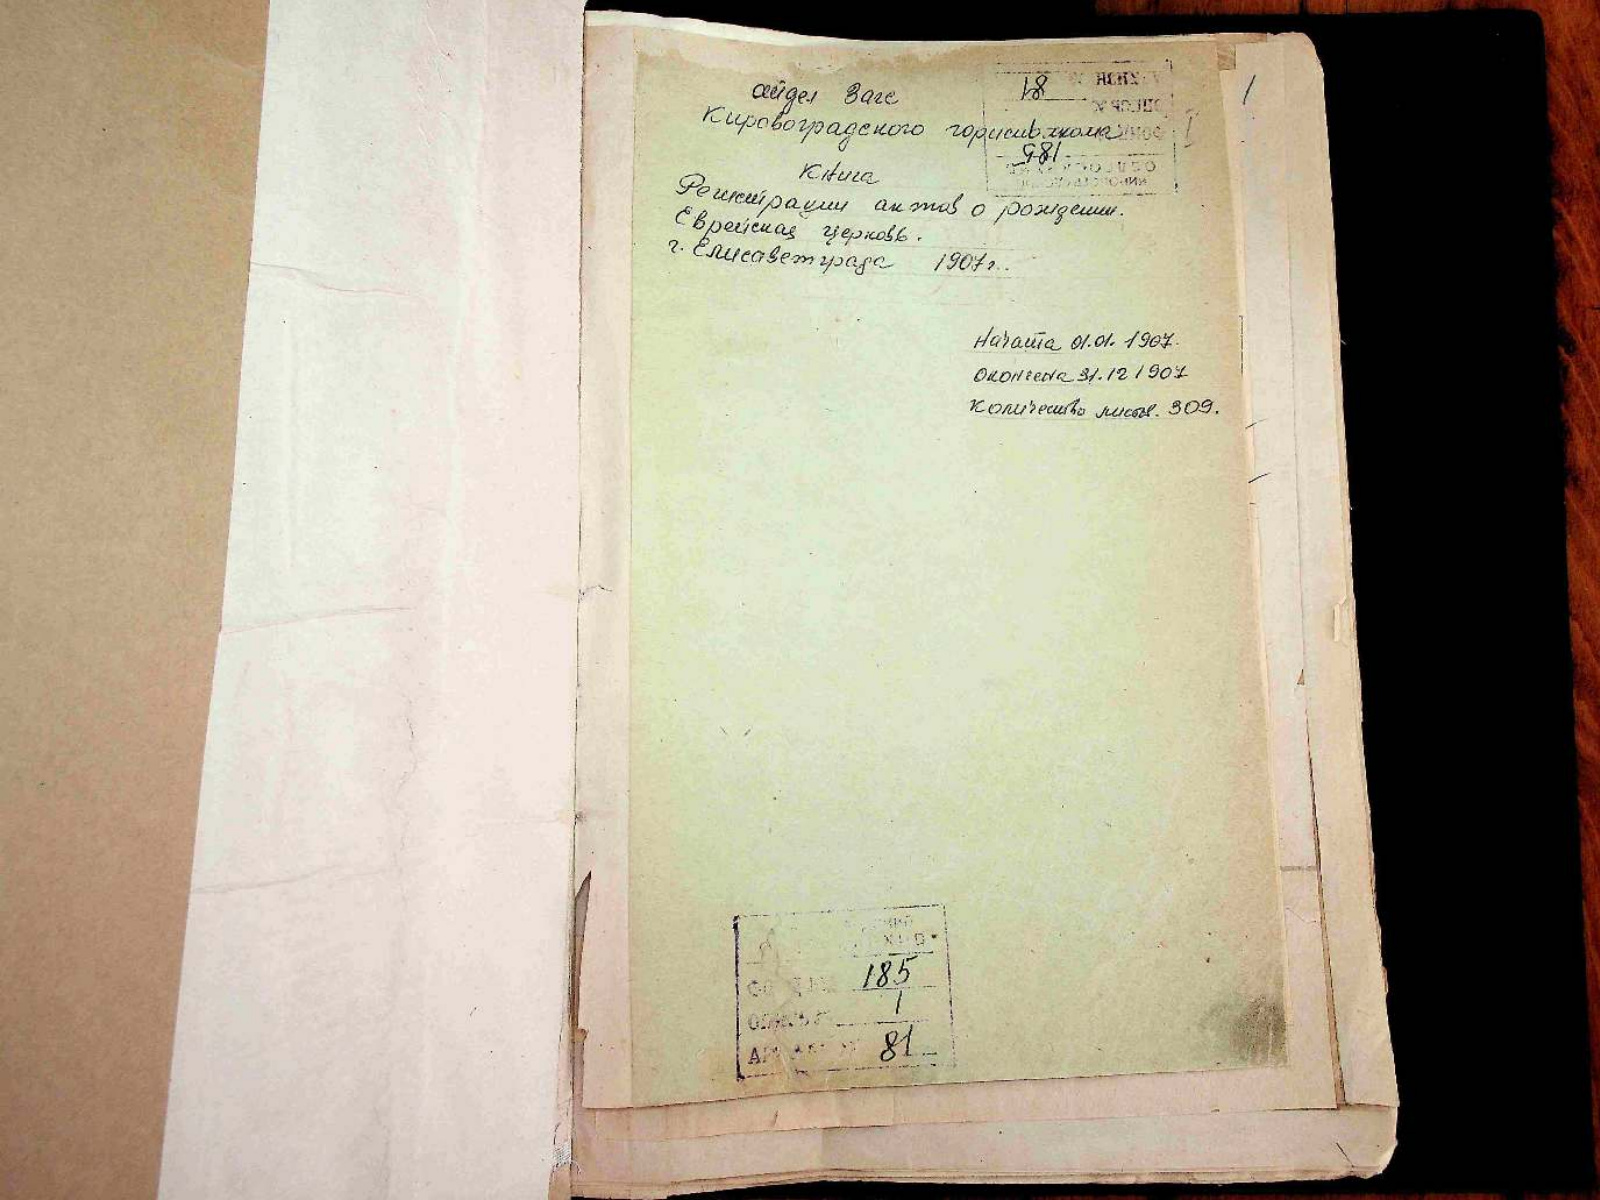 отдел Загс
Кировоградского горисполкома
Книга
Регистрации актов о рождении.
Еврейская церковь.
г. Елисаветграда 1907г.
Начата 01.01.1907.
Окончена 31.12 1907
Количество листов. 309.
185
1
81